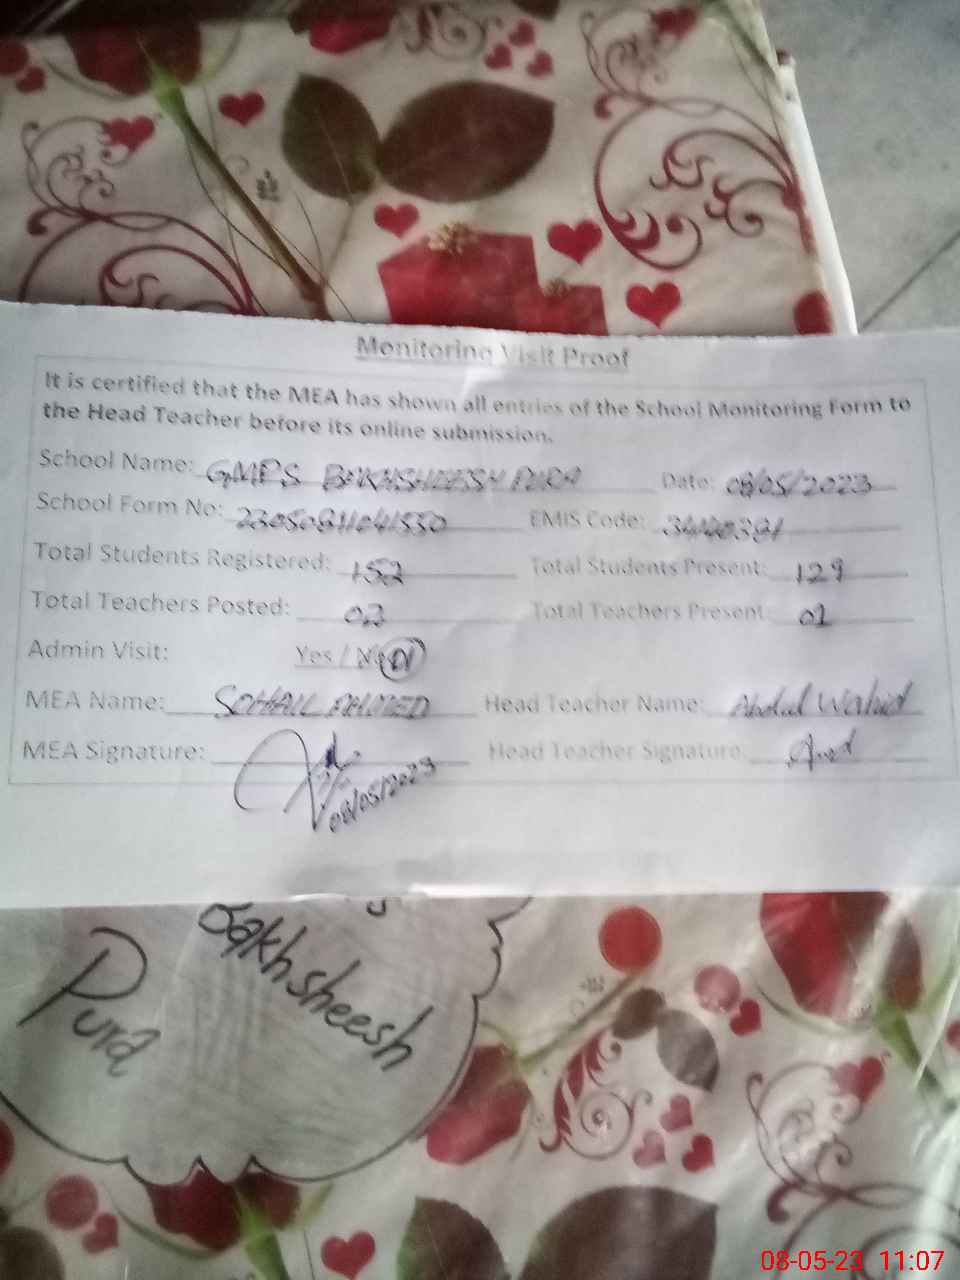 Monitoring Visit Proof
It is certified that the MEA has shown all entries of the School Monitoring Form to
the Head Teacher before its online submission.
School Name: GMPS BAKHSHEESH PURA Date: 08/05/2023
School Form No: EMIS Code:
Total Students Registered: 152 Total Students Present: 129
Total Teachers Posted: 02 Total Teachers Present: 01
Admin Visit: Yes / No
MEA Name: SOHAIL AHMED Head Teacher Name: Abdul Wahid
MEA Signature: Head Teacher Signature:
08/05/2023
Bakhsheesh
Pura
08-05-23 11:07